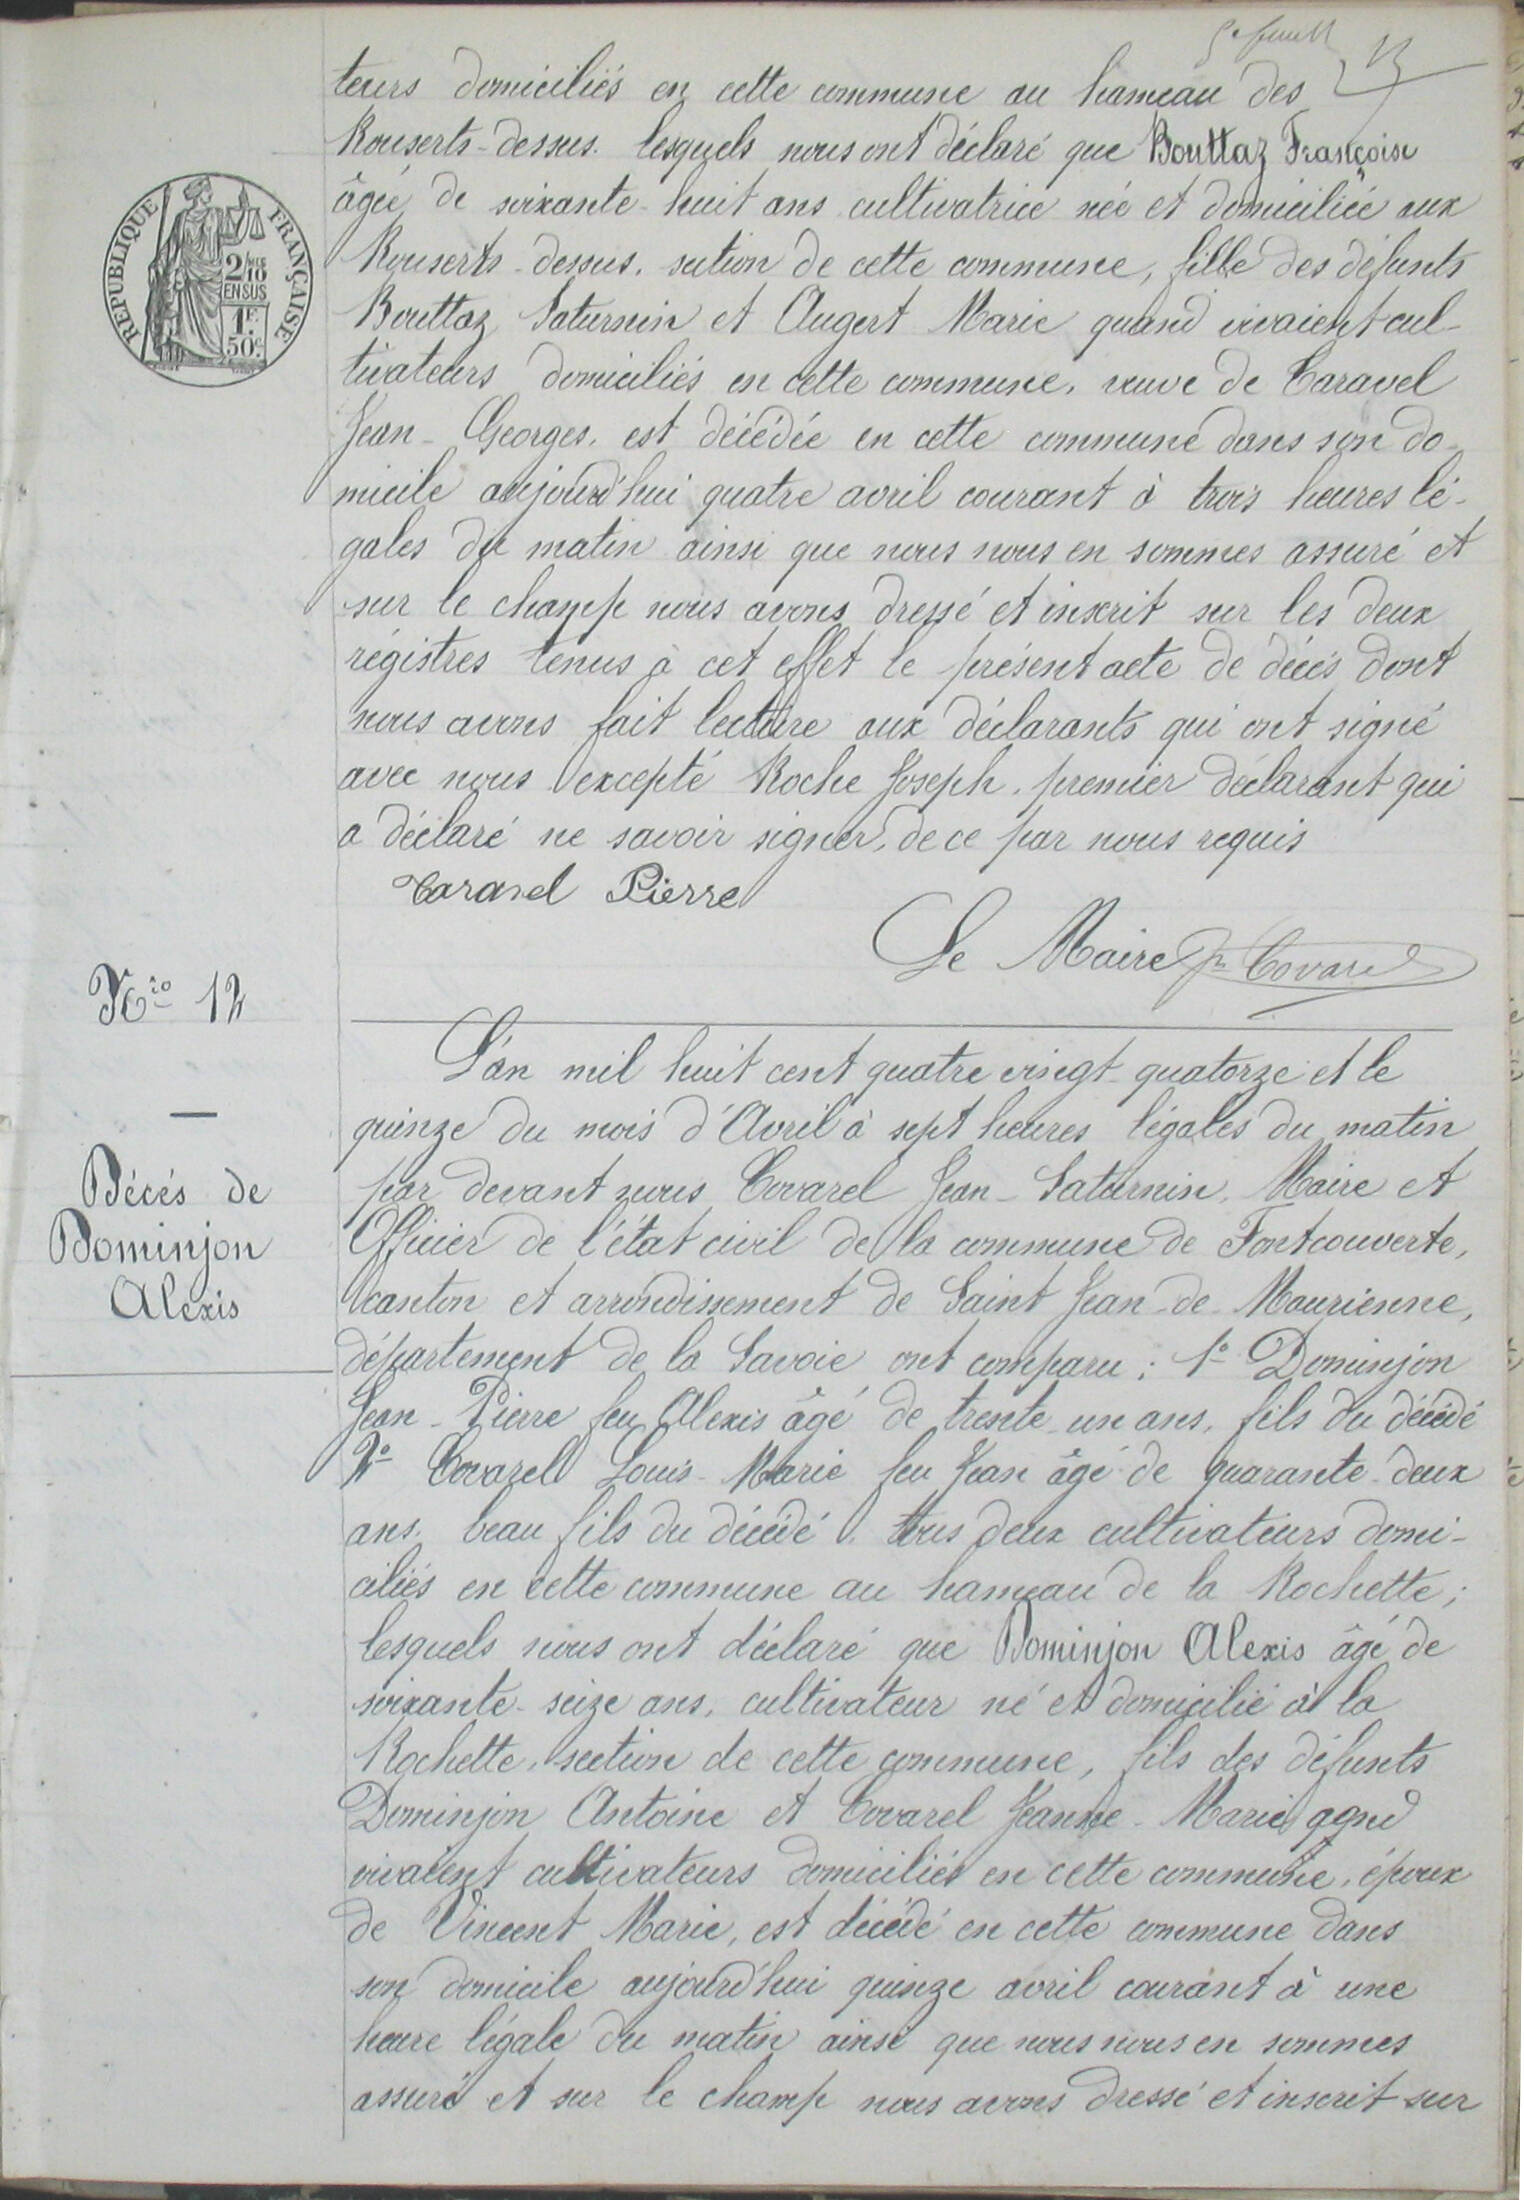 5e feuill
teurs domiciliés en cette commune au hameau des
Rouserts-dessus. lesquels nous ont déclaré que Bouttaz Françoise
âgée de soixante-huit ans cultivatrice née et domiciliée aux
Rouserts-dessus. section de cette commune, fille des défunts
Bouttaz Saturnin et Augert Marie quand vivaient cul-
tivateurs domiciliés en cette commune, veuve de Caravel
Jean-Georges, est décédée en cette commune dans son do-
micile aujourd'hui quatre avril courant à trois heures lé-
gales du matin ainsi que nous nous en sommes assuré et
sur le champ nous avons dressé et inscrit sur les deux
régistres tenus à cet effet le présent acte de décès dont
nous avons fait lecture aux déclarants qui ont signé
avec nous excepté Roche Joseph, premier déclarant qui
a déclaré ne savoir signer, de ce par nous requis
Caravel Pierre
Le Maire Covarel
RÉPUBLIQUE FRANÇAISE
2/10
EN SUS
1F.
50c.
Nro 12
Décés de
Dominjon
Alexis
L'an mil huit cent quatre vingt-quatorze et le
quinze du mois d'Avril à sept heures légales du matin
par devant nous Covarel Jean-Saturnin, Maire et
Officier de l'état civil de la commune de Fontcouverte,
canton et arrondissement de Saint Jean-de-Maurienne,
département de la Savoie ont comparu: 1o Dominjon
Jean-Pierre feu Alexis âgé de trente-un ans, fils du décédé
2o Covarel Louis-Marie feu Jean âgé de quarante-deux
ans, beau fils du décédé, tous deux cultivateurs domi-
ciliés en cette commune au hameau de la Rochette;
lesquels nous ont déclaré que Dominjon Alexis âgé de
soixante-seize ans, cultivateur né et domicilié à la
Rochette, section de cette commune, fils des défunts
Dominjon Antoine et Covarel Jeanne-Marie qand
vivaient cultivateurs domiciliés en cette commune, époux
de Vincent Marie, est décédé en cette commune dans
son domicile aujourd'hui quinze avril courant à une
heure légale du matin ainsi que nous nous en sommes
assuré et sur le champ nous avons dressé et inscrit sur